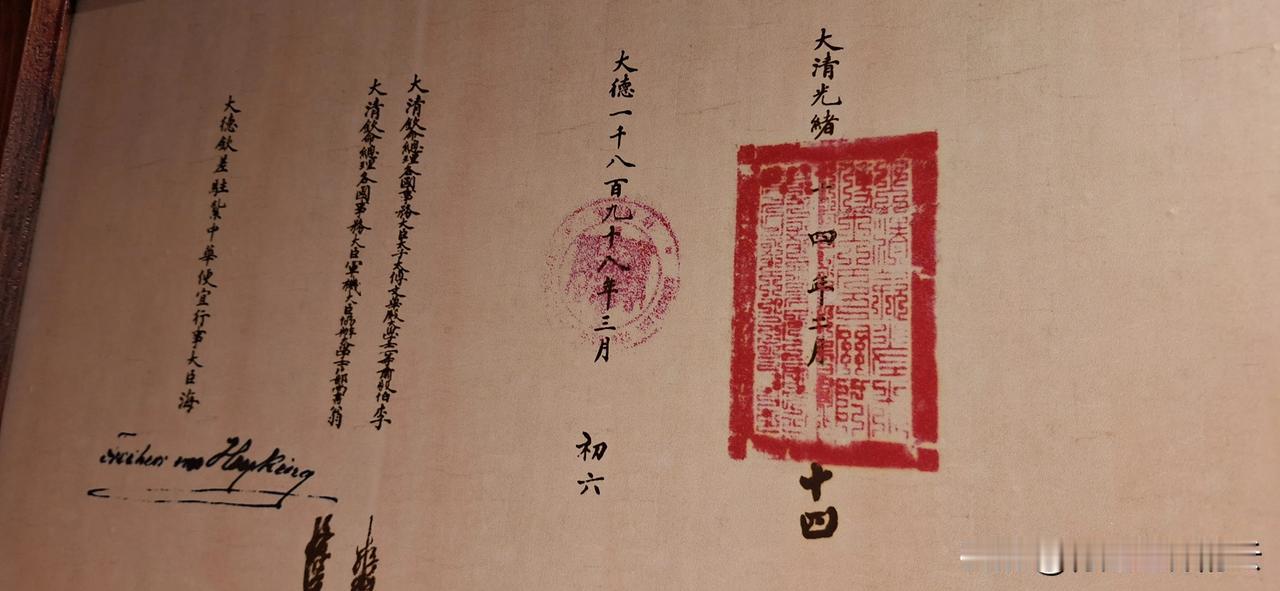 大清光緒二十四年二月十四
大德一千八百九十八年三月初六
大清欽命總理各國事務大臣太子太傅文華殿大學士一等肅毅伯李
大清欽命總理各國事務大臣軍機大臣協辦大學士戶部尚書翁
大德欽差駐紮中華便宜行事大臣海
Freiherr von Heyking